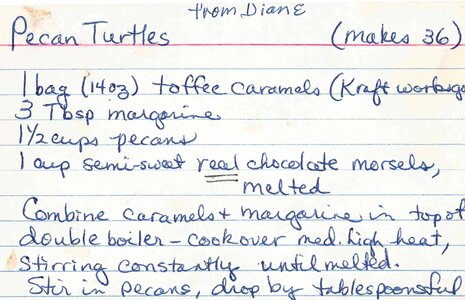 from Diane
Pecan Turtles (makes 36)
1 bag (14oz) toffee caramels (Kraft works go
3 Tbsp margarine
1½ cups pecans
1 cup semi-sweet real chocolate morsels,
melted
Combine caramels + margarine in top of
double boiler - cook over med. high heat,
stirring constantly until melted.
Stir in pecans, drop by tablespoonsful